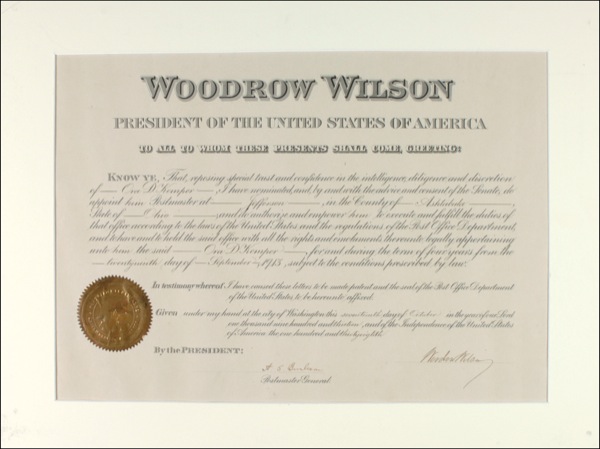 WOODROW WILSON
PRESIDENT OF THE UNITED STATES OF AMERICA
TO ALL TO WHOM THESE PRESENTS SHALL COME, GREETING:
KNOW YE, That, reposing special trust and confidence in the intelligence, diligence and discretion
of Ora D Kemper, I have nominated, and, by and with the advice and consent of the Senate, do
appoint him Postmaster at Jefferson, in the County of Ashtabula,
State of Ohio, and do authorize and empower him to execute and fulfill the duties of
that office according to the laws of the United States and the regulations of the Post Office Department,
and to have and to hold the said office with all the rights and emoluments thereunto legally appertaining
unto him the said D Kemper for and during the term of four years from the
day of September, 1913, subject to the conditions prescribed by law.
In testimony whereof I have caused these letters to be made patent and the seal of the Post Office Department
of the United States, to be hereunto affixed.
Given under my hand at the city of Washington this day of October in the year of our Lord
one thousand nine hundred and thirteen, and of the Independence of the United States
of America the one hundred and thirtyeighth.
By the PRESIDENT:
Woodrow Wilson
Postmaster General